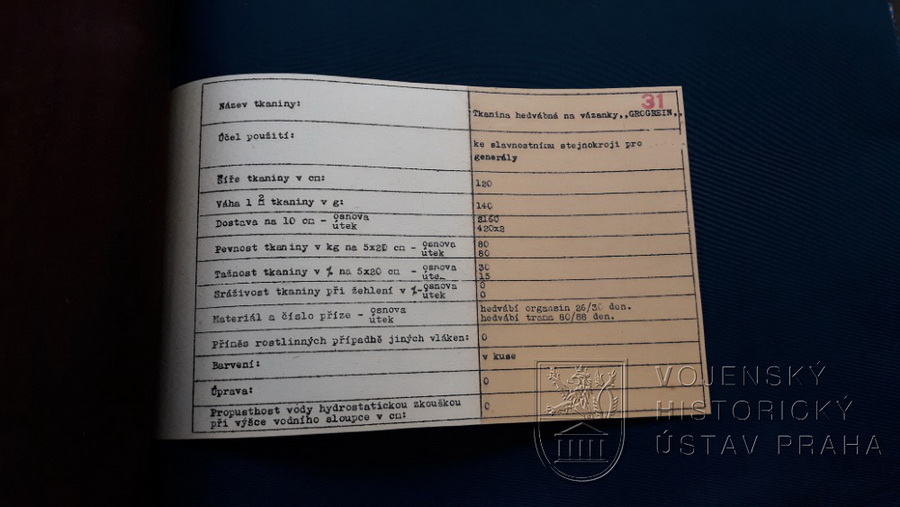 31
Název tkaniny: Tkanina hedvábná na vázanky,,GROGREIN,,
Účel použití: ke slavnostnímu stejnokroji pro
generály
Šíře tkaniny v cm: 120
Váha 1 m2 tkaniny v g: 140
Dostava na 10 cm - osnova 2160
útek 420x2
Pevnost tkaniny v kg na 5x20 cm - osnova 80
útek 80
Tažnost tkaniny v % na 5x20 cm - osnova 30
útek 15
Sráživost tkaniny při žehlení v %-osnova 0
útek 0
Materiál a číslo příze - osnova hedvábí organsin 26/30 den.
útek hedvábí trama 80/88 den.
Příměs rostlinných případně jiných vláken: 0
Barvení: v kuse
Úprava: 0
Propustnost vody hydrostatickou zkouškou
při výšce vodního sloupce v cm: 0
VOJENSKÝ
HISTORICKÝ
ÚSTAV PRAHA